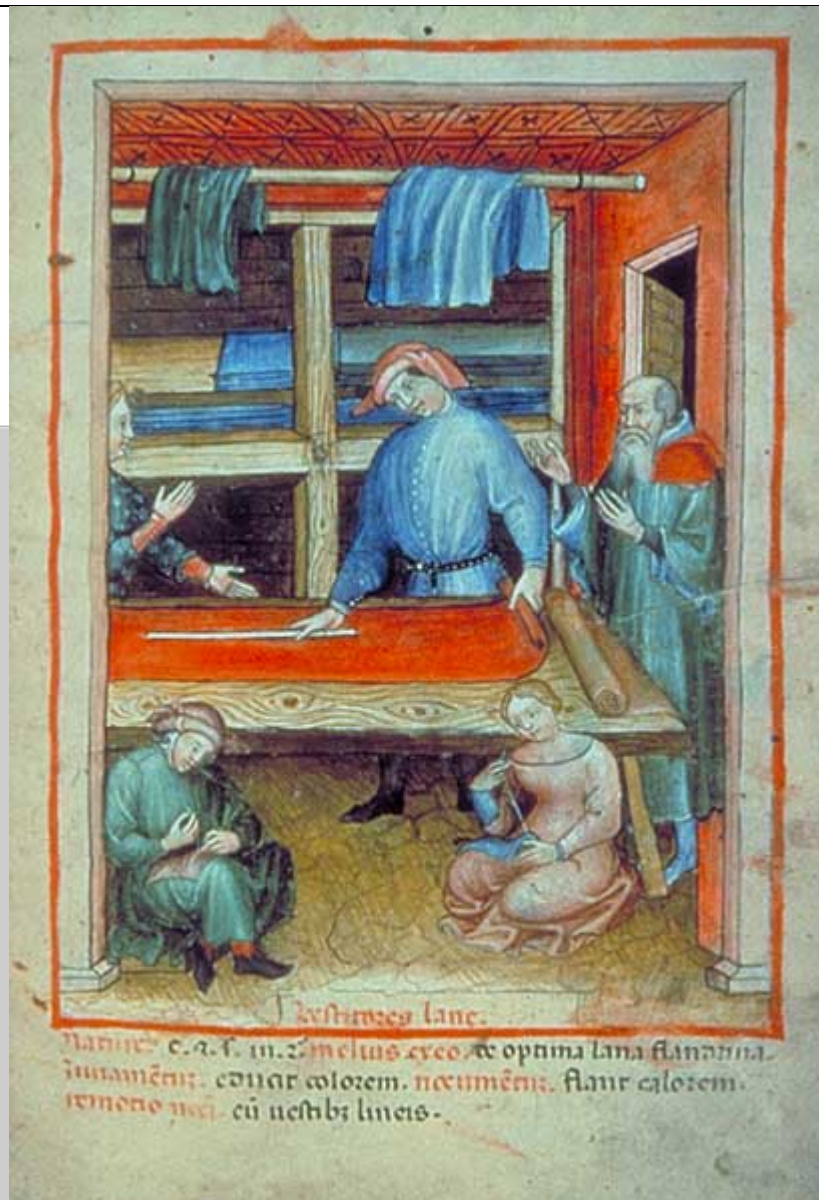 Vestitores lane.
Nature. c. ⁊ s. in. 2. melius ex eo. de optima lana flandrina.
iuuamētuȝ. educit colorem. nocumētuȝ. flant calorem.
remotio noci. cū uestibȝ lineis.